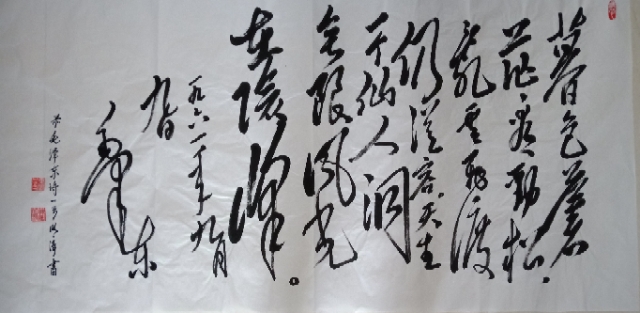 暮色苍
茫看劲松，
乱云飞渡
仍从容天生
一个仙人洞
无限风光
在险峰。
一九六一年九月
九日
毛泽东
毛泽东诗一首 书